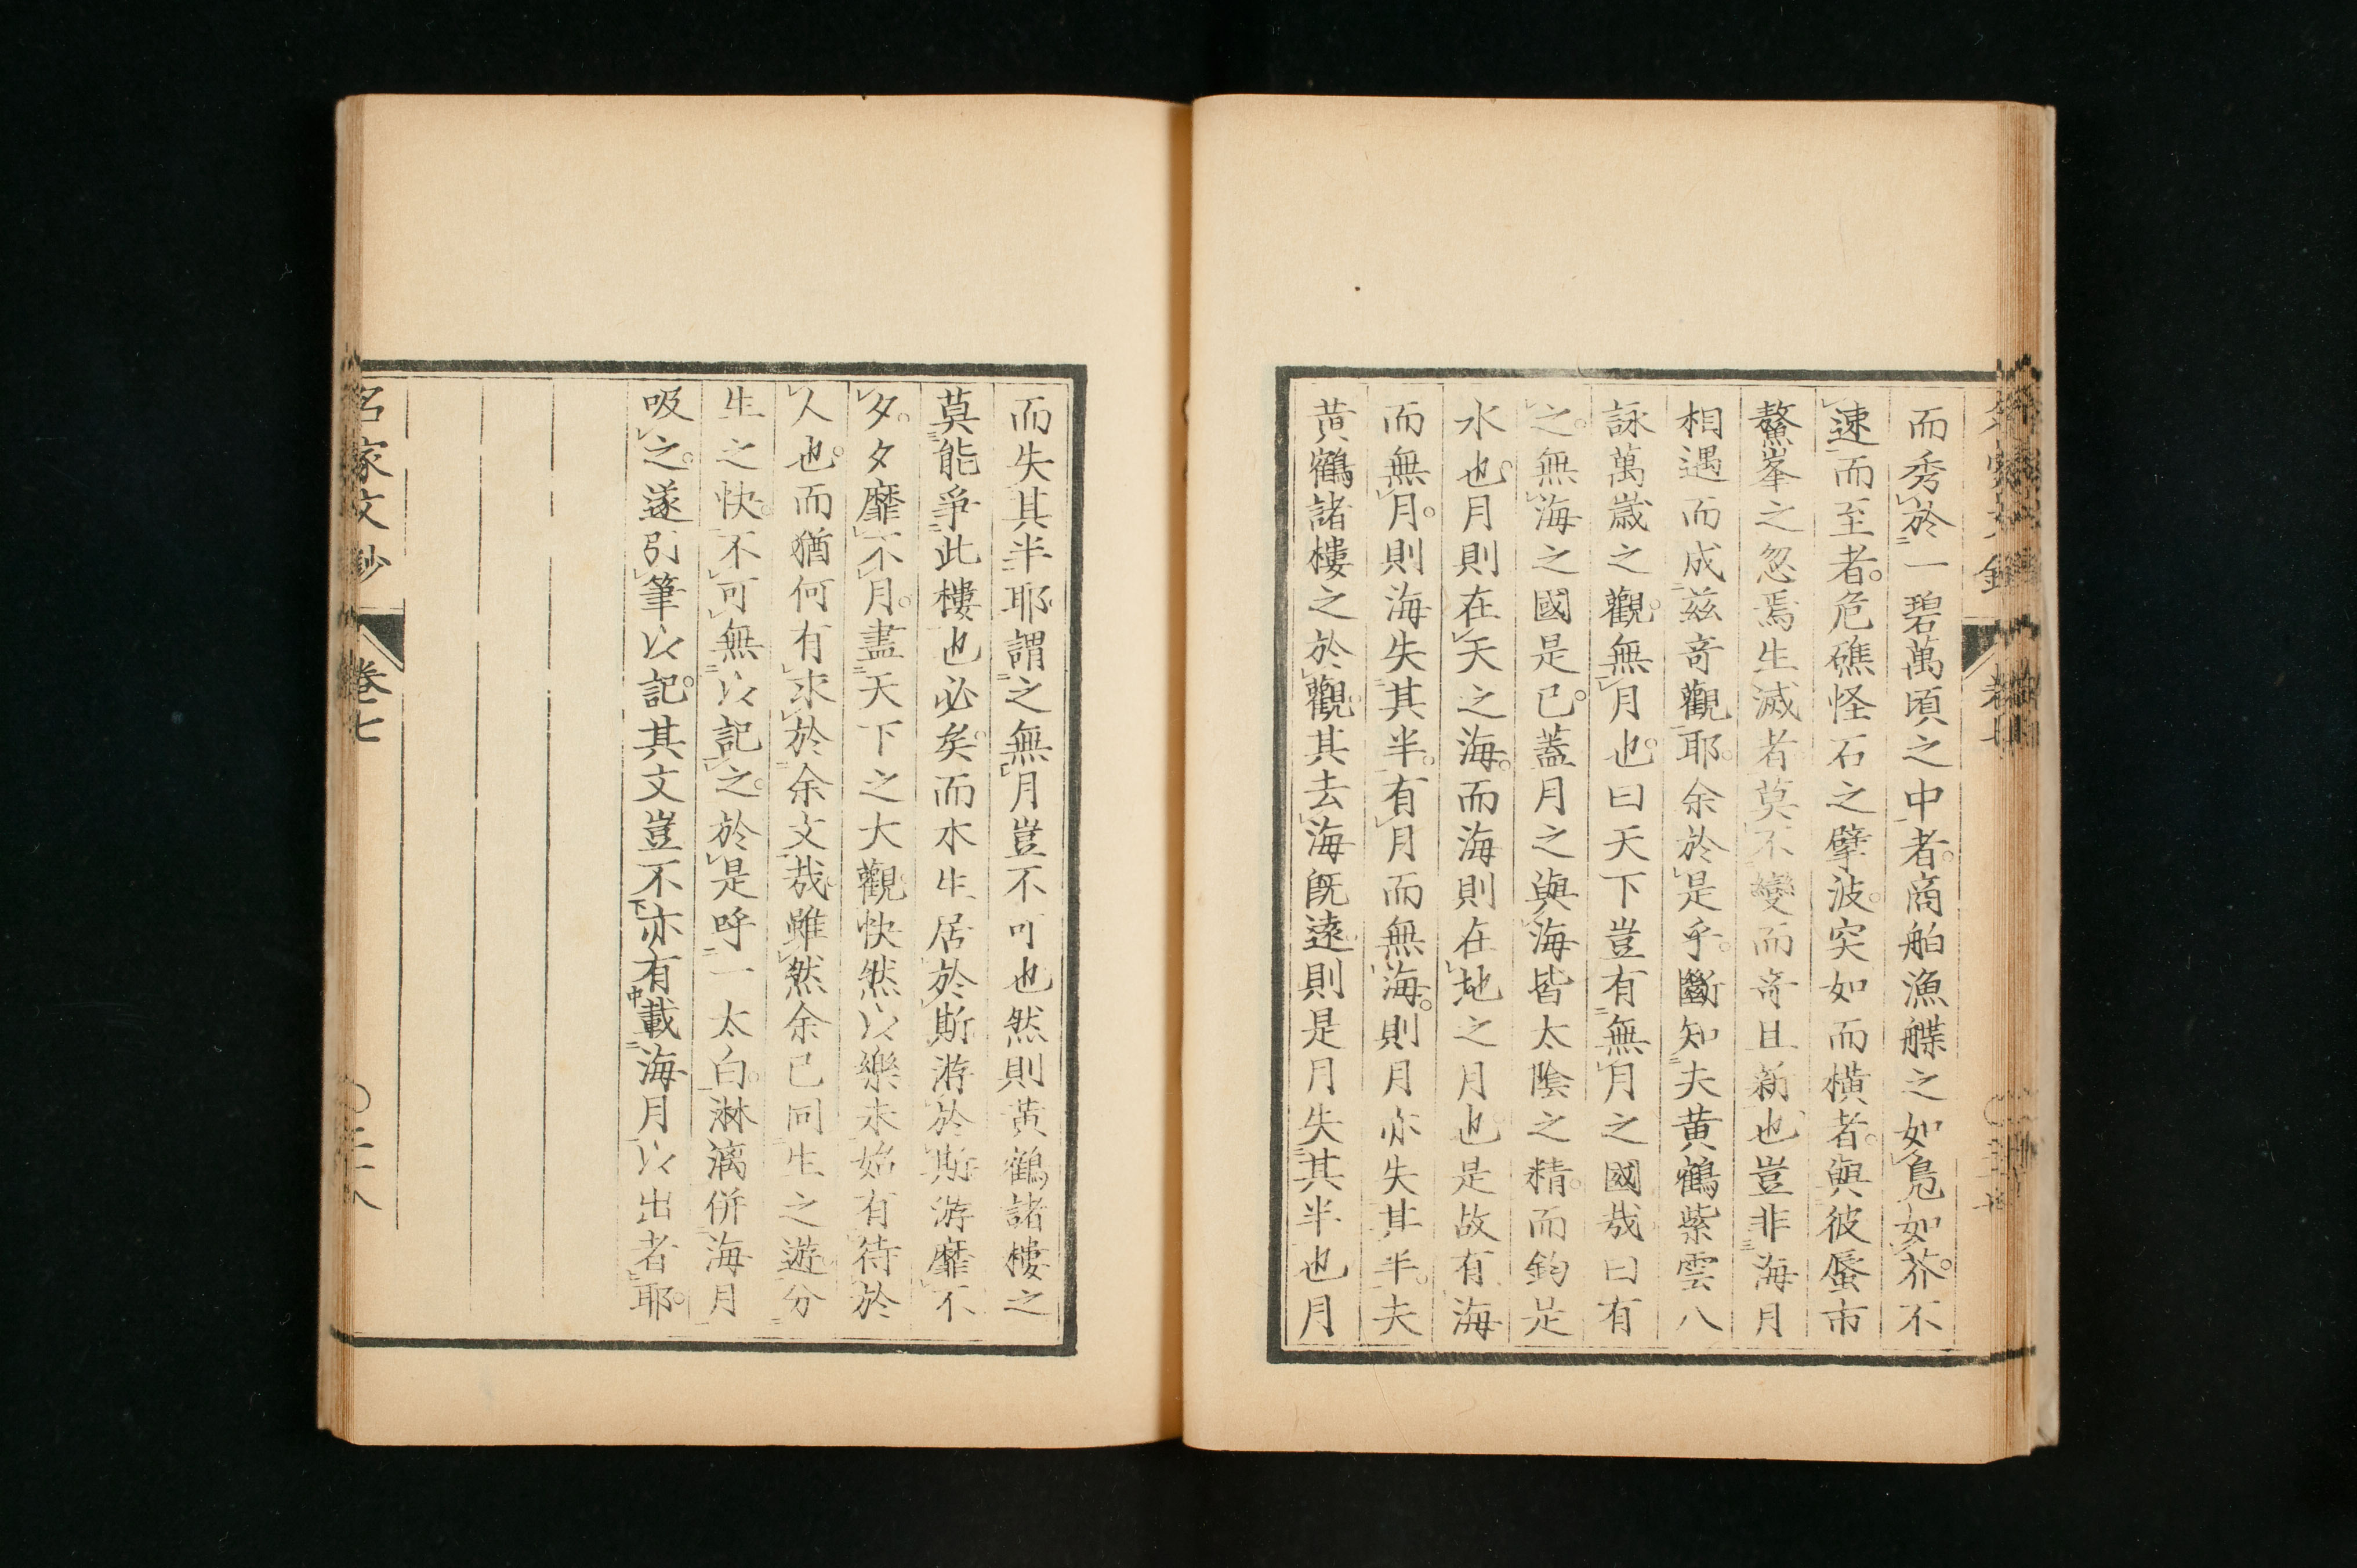 而秀於一碧萬頃之中者。商舶漁艓之如鳧如芥。不
速而至者。危礁怪石之擘波。突如而橫者。與彼蜃市
鰲峯之忽焉生滅者莫不變而奇且新也。豈非海月
相遇而成茲奇觀耶。余於是乎。斷知夫黃鶴紫雲八
詠萬歲之觀。無月也。曰天下豈有無月之國哉曰有
之。無海之國是已。蓋月之與海皆太陰之精。而鈞是
水也。月則在天之海。而海則在地之月也。是故有海
而無月。則海失其半。有月而無海。則月亦失其半。夫
黃鶴諸樓之於觀。其去海既遠。則是月失其半也月
而失其半耶。謂之無月豈不可也然則黃鶴諸樓之
莫能爭此樓也必矣。而水生居於斯游於斯游靡不
夕。夕靡不月。盡天下之大觀。快然以樂未始有待於
人也。而猶何有求於余文哉。雖然余已同生之遊。分
生之快。不可無以記之。於是呼一太白。淋漓併海月
吸之。遂引筆以記。其文豈不亦有載海月以出者耶。
名家文鈔
卷七